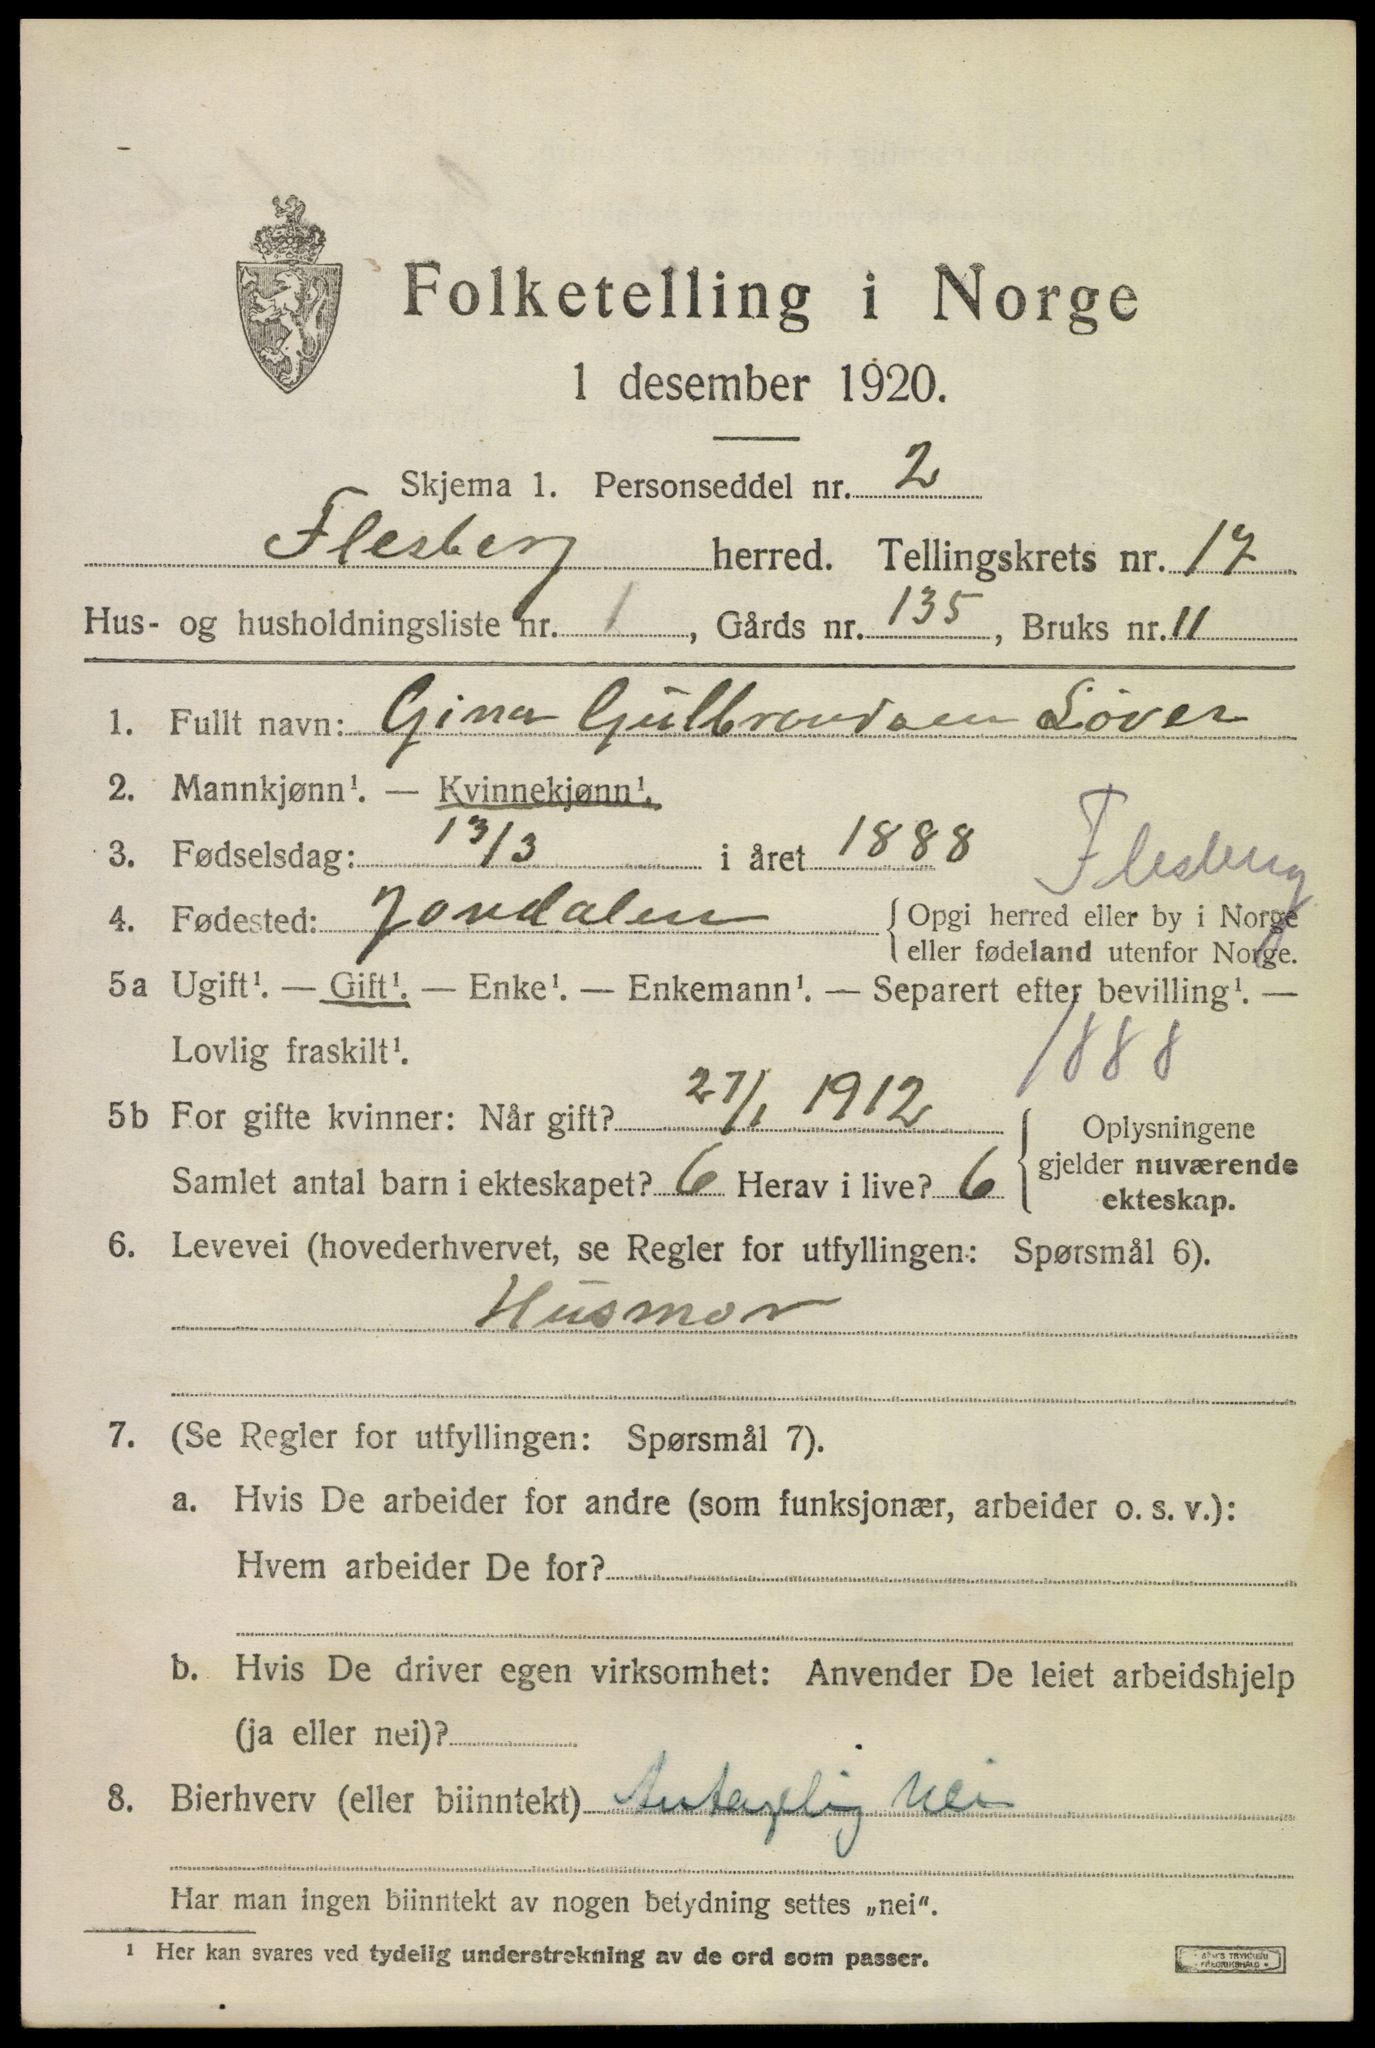 Folketelling i Norge
1 desember 1920.
Skjema 1. Personseddel nr. 2
Flesberg herred. Tellingskrets nr. 17
Hus- og husholdningsliste nr. 1, Gårds nr. 135, Bruks nr. 11
1. Fullt navn: Gina Gulbrandsen Løver
2. Mannkjønn¹. — Kvinnekjønn¹.
3. Fødselsdag: 13/3 i året 1888
Flesberg
4. Fødested: Jondalen { Opgi herred eller by i Norge
eller fødeland utenfor Norge.
5a Ugift¹. — Gift¹. — Enke¹. — Enkemann¹. — Separert efter bevilling¹. —
Lovlig fraskilt¹.
1888
5b For gifte kvinner: Når gift? 27/1 1912
Samlet antal barn i ekteskapet? 6 Herav i live? 6
Oplysningene
gjelder nuværende
ekteskap.
6. Levevei (hovederhvervet, se Regler for utfyllingen: Spørsmål 6).
Husmor
7. (Se Regler for utfyllingen: Spørsmål 7).
a. Hvis De arbeider for andre (som funksjonær, arbeider o. s. v.):
Hvem arbeider De for?
b. Hvis De driver egen virksomhet: Anvender De leiet arbeidshjelp
(ja eller nei)?
8. Bierhverv (eller biinntekt) Antagelig Nei
Har man ingen biinntekt av nogen betydning settes „nei“.
¹ Her kan svares ved tydelig understrekning av de ord som passer.